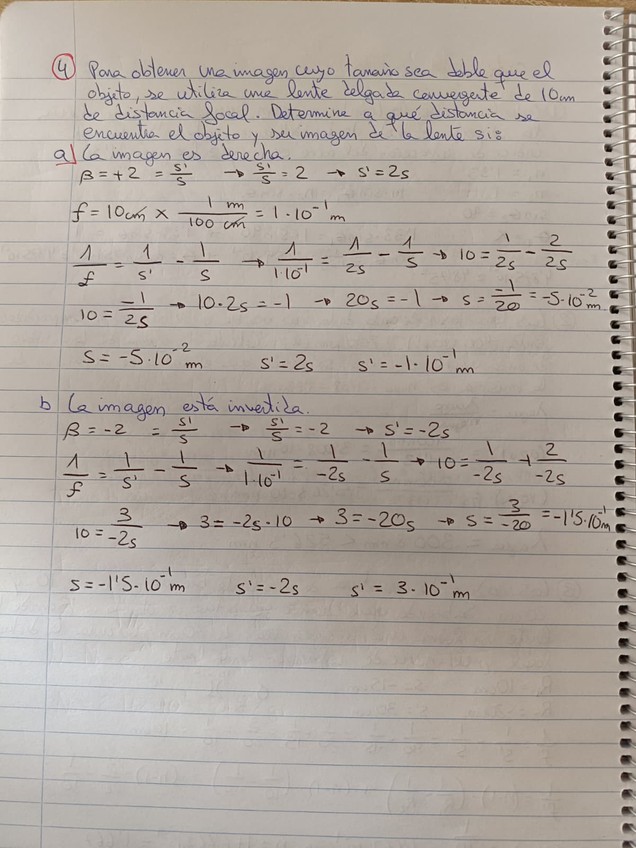 4 Para obtener una imagen cuyo tamaño sea doble que el
objeto, se utiliza una lente delgada convergente de 10cm
de distancia focal. Determine a qué distancia se
encuentra el objeto y su imagen de la lente si:
a) La imagen es derecha.
β = +2 = s'/s → s'/s = 2 → s' = 2s
f = 10 cm × 1 m / 100 cm = 1·10⁻¹ m
1/f = 1/s' - 1/s → 1/1·10⁻¹ = 1/2s - 1/s → 10 = 1/2s - 2/2s
10 = -1/2s → 10·2s = -1 → 20s = -1 → s = -1/20 = -5·10⁻² m
s = -5·10⁻² m s' = 2s s' = -1·10⁻¹ m
b La imagen está invertida.
β = -2 = s'/s → s'/s = -2 → s' = -2s
1/f = 1/s' - 1/s → 1/1·10⁻¹ = 1/-2s - 1/s → 10 = 1/-2s + 2/-2s
10 = 3/-2s → 3 = -2s·10 → 3 = -20s → s = 3/-20 = -1'5·10⁻¹ m
s = -1'5·10⁻¹ m s' = -2s s' = 3·10⁻¹ m